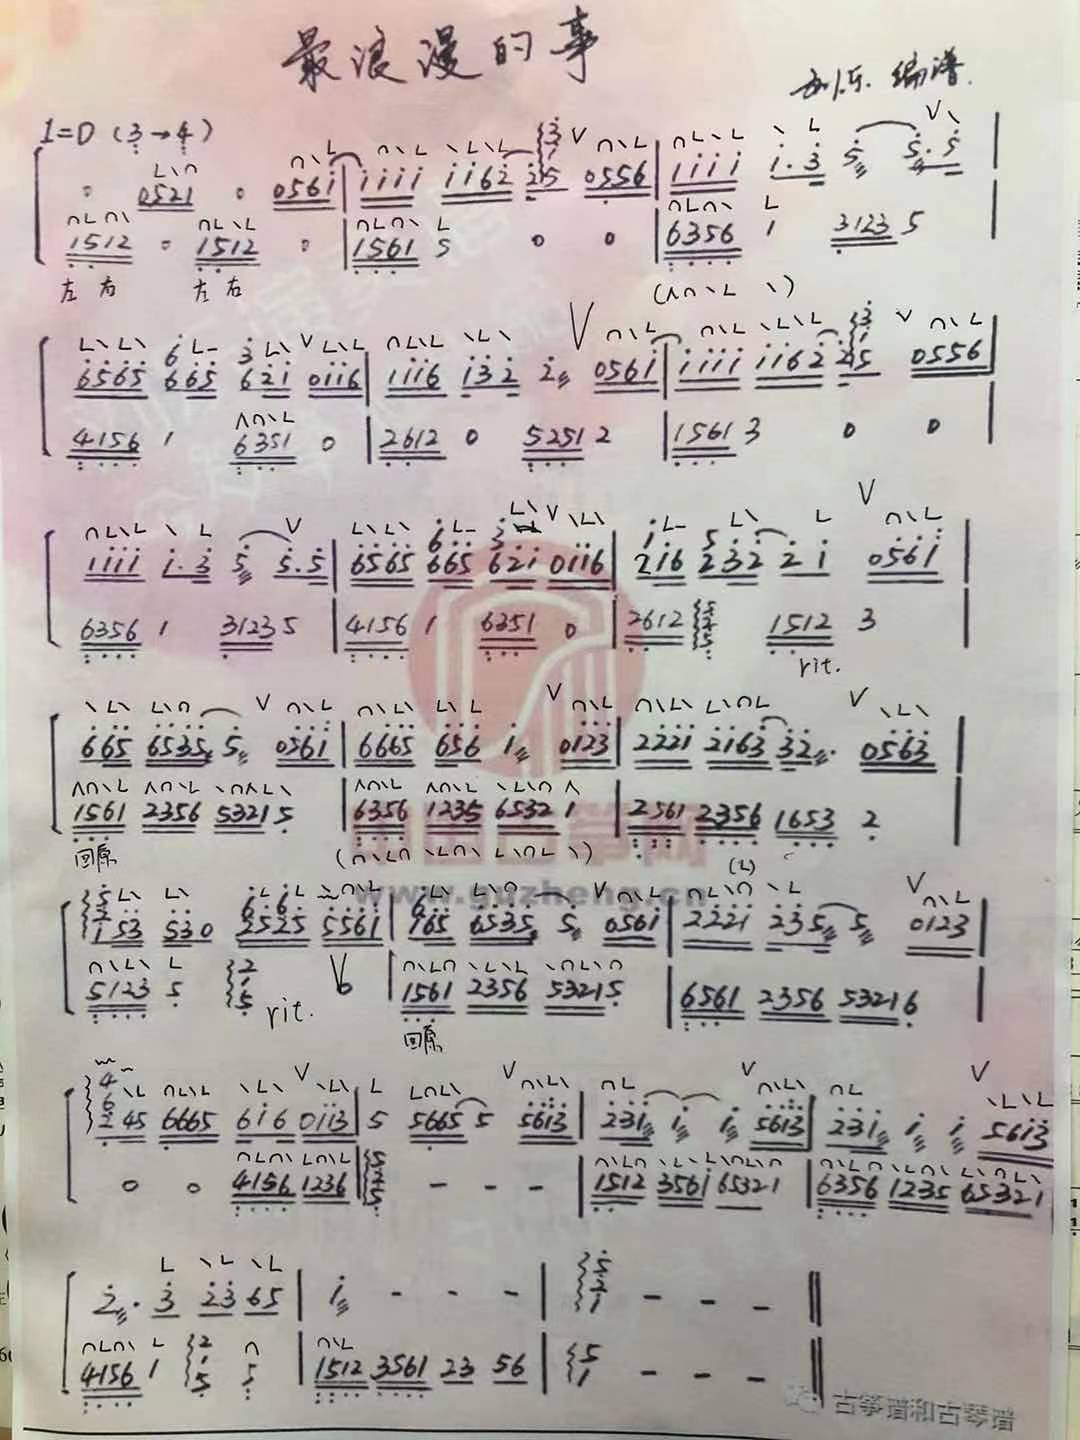 最浪漫的事
编谱
1=D (3→4)
0 0521 0 0561 | 1111 1162 25 0556 | 1111 1.3 5 5.5 |
1512 0 1512 0 | 1561 5 0 0 | 6356 1 3123 5
左 右 左 右
6565 665 621 0116 | 1116 132 2 0561 | 1111 1162 25 0556 |
4156 1 6351 0 | 2612 0 5251 2 | 1561 3 0 0 |
1111 1.3 5 5.5 | 6565 665 621 0116 | 216 232 21 0561 |
6356 1 3123 5 | 4156 1 6351 0 | 2612 1512 3 |
rit.
665 6535 5 0561 | 6665 656 1 0123 | 2221 2163 32. 0563 |
1561 2356 5321 5 | 6356 1235 6532 1 | 2561 2356 1653 2 |
回原
www.guzheng.cn
153 530 2525 5561 | 165 6535 5 0561 | 2221 235 5 0123 |
5123 5 rit. | 1561 2356 5321 5 | 6561 2356 5321 6
回原
45 6665 616 0113 | 5 5665 5 5613 | 231 1 1 5613 | 231 1 1 5613
0 0 4156 1236 | - - - | 1512 3561 6532 1 | 6356 1235 6532 1
2. 3 23 65 | 1 - - - | - - -
4156 1 | 1512 3561 23 56 | - - -
古筝谱和古琴谱